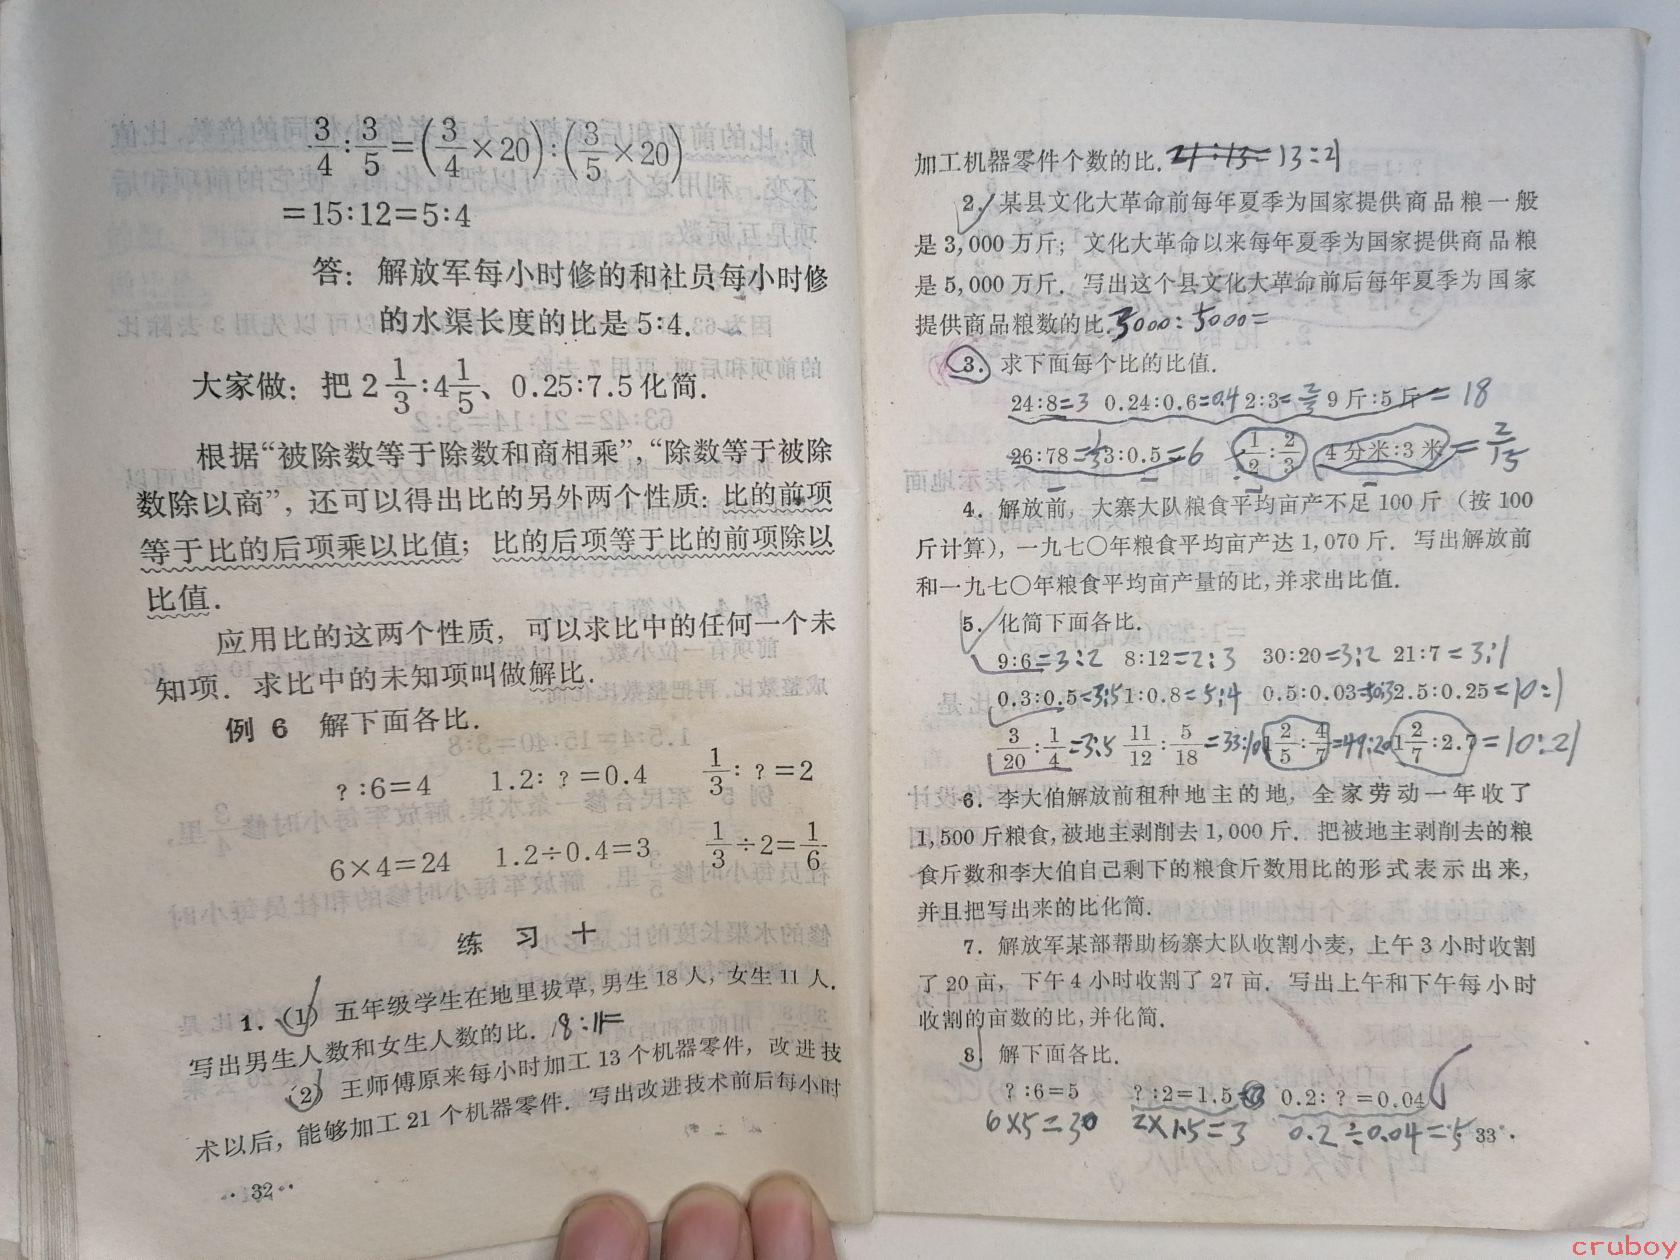 3/4:3/5=(3/4×20):(3/5×20)
=15:12=5:4
答：解放军每小时修的和社员每小时修
的水渠长度的比是5:4.
大家做：把2 1/3:4 1/5、0.25:7.5化简.
根据“被除数等于除数和商相乘”，“除数等于被除
数除以商”，还可以得出比的另外两个性质：比的前项
等于比的后项乘以比值；比的后项等于比的前项除以
比值.
应用比的这两个性质，可以求比中的任何一个未
知项．求比中的未知项叫做解比.
例 6 解下面各比.
?:6=4 1.2:?=0.4 1/3:?=2
6×4=24 1.2÷0.4=3 1/3÷2=1/6
练 习 十
1.(1) 五年级学生在地里拔草，男生18人，女生11人.
写出男生人数和女生人数的比. 18:11=
(2) 王师傅原来每小时加工13个机器零件，改进技
术以后，能够加工21个机器零件．写出改进技术前后每小时
32
加工机器零件个数的比. 21:13=13:21
2. 某县文化大革命前每年夏季为国家提供商品粮一般
是3,000万斤；文化大革命以来每年夏季为国家提供商品粮
是5,000万斤．写出这个县文化大革命前后每年夏季为国家
提供商品粮数的比. 3000:5000=
3. 求下面每个比的比值.
24:8=3 0.24:0.6=0.4 2:3=2/3 9斤:5斤=18
26:78=1/3 3:0.5=6 1/2:2/3 4分米:3米=2/15
4. 解放前，大寨大队粮食平均亩产不足100斤（按100
斤计算），一九七〇年粮食平均亩产达1,070斤．写出解放前
和一九七〇年粮食平均亩产量的比，并求出比值.
5. 化简下面各比.
9:6=3:2 8:12=2:3 30:20=3:2 21:7=3:1
0.3:0.5=3:5 1:0.8=5:4 0.5:0.03=50:3 2.5:0.25=10:1
3/20:1/4=3:5 11/12:5/18=33:10 1 2/5:4/7=49:20 1 2/7:2.7=10:21
6. 李大伯解放前租种地主的地，全家劳动一年收了
1,500斤粮食，被地主剥削去1,000斤．把被地主剥削去的粮
食斤数和李大伯自己剩下的粮食斤数用比的形式表示出来，
并且把写出来的比化简.
7. 解放军某部帮助杨寨大队收割小麦，上午3小时收割
了20亩，下午4小时收割了27亩．写出上午和下午每小时
收割的亩数的比，并化简.
8. 解下面各比.
?:6=5 ?:2=1.5 0.2:?=0.04
6×5=30 2×1.5=3 0.2÷0.04=5
33
cruboy